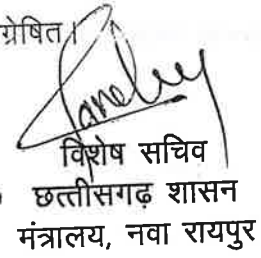 ग्रेषित।
विशेष सचिव
छत्तीसगढ़ शासन
मंत्रालय, नवा रायपुर